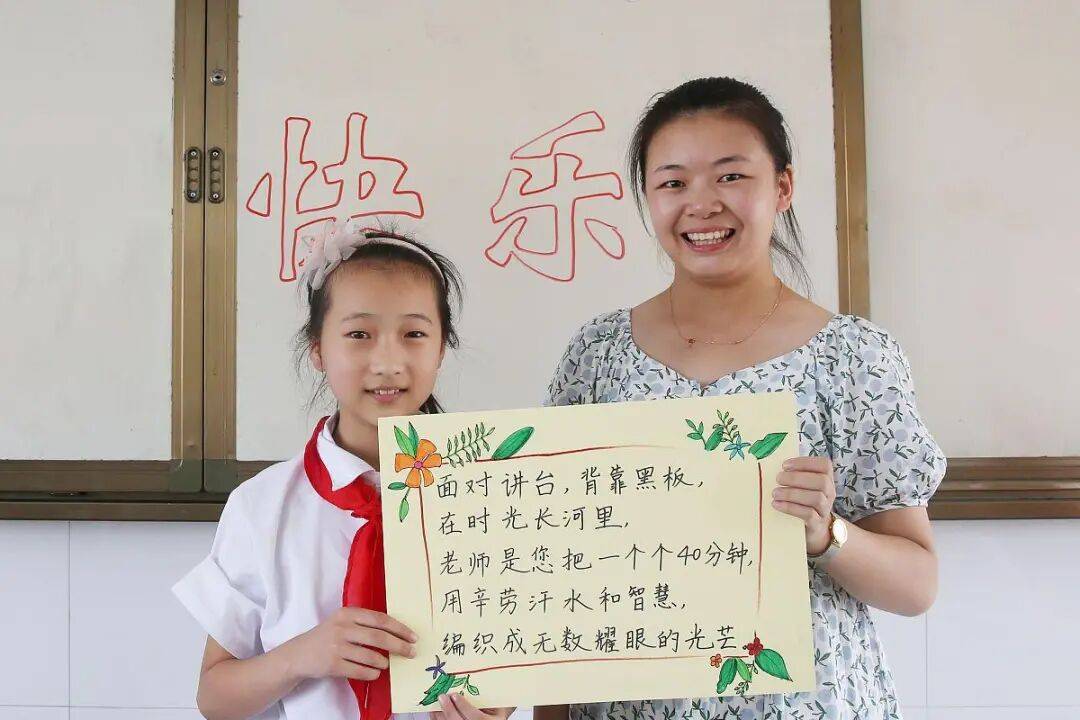 快乐
面对讲台,背靠黑板,
在时光长河里,
老师是您把一个个40分钟,
用辛劳汗水和智慧,
编织成无数耀眼的光芒